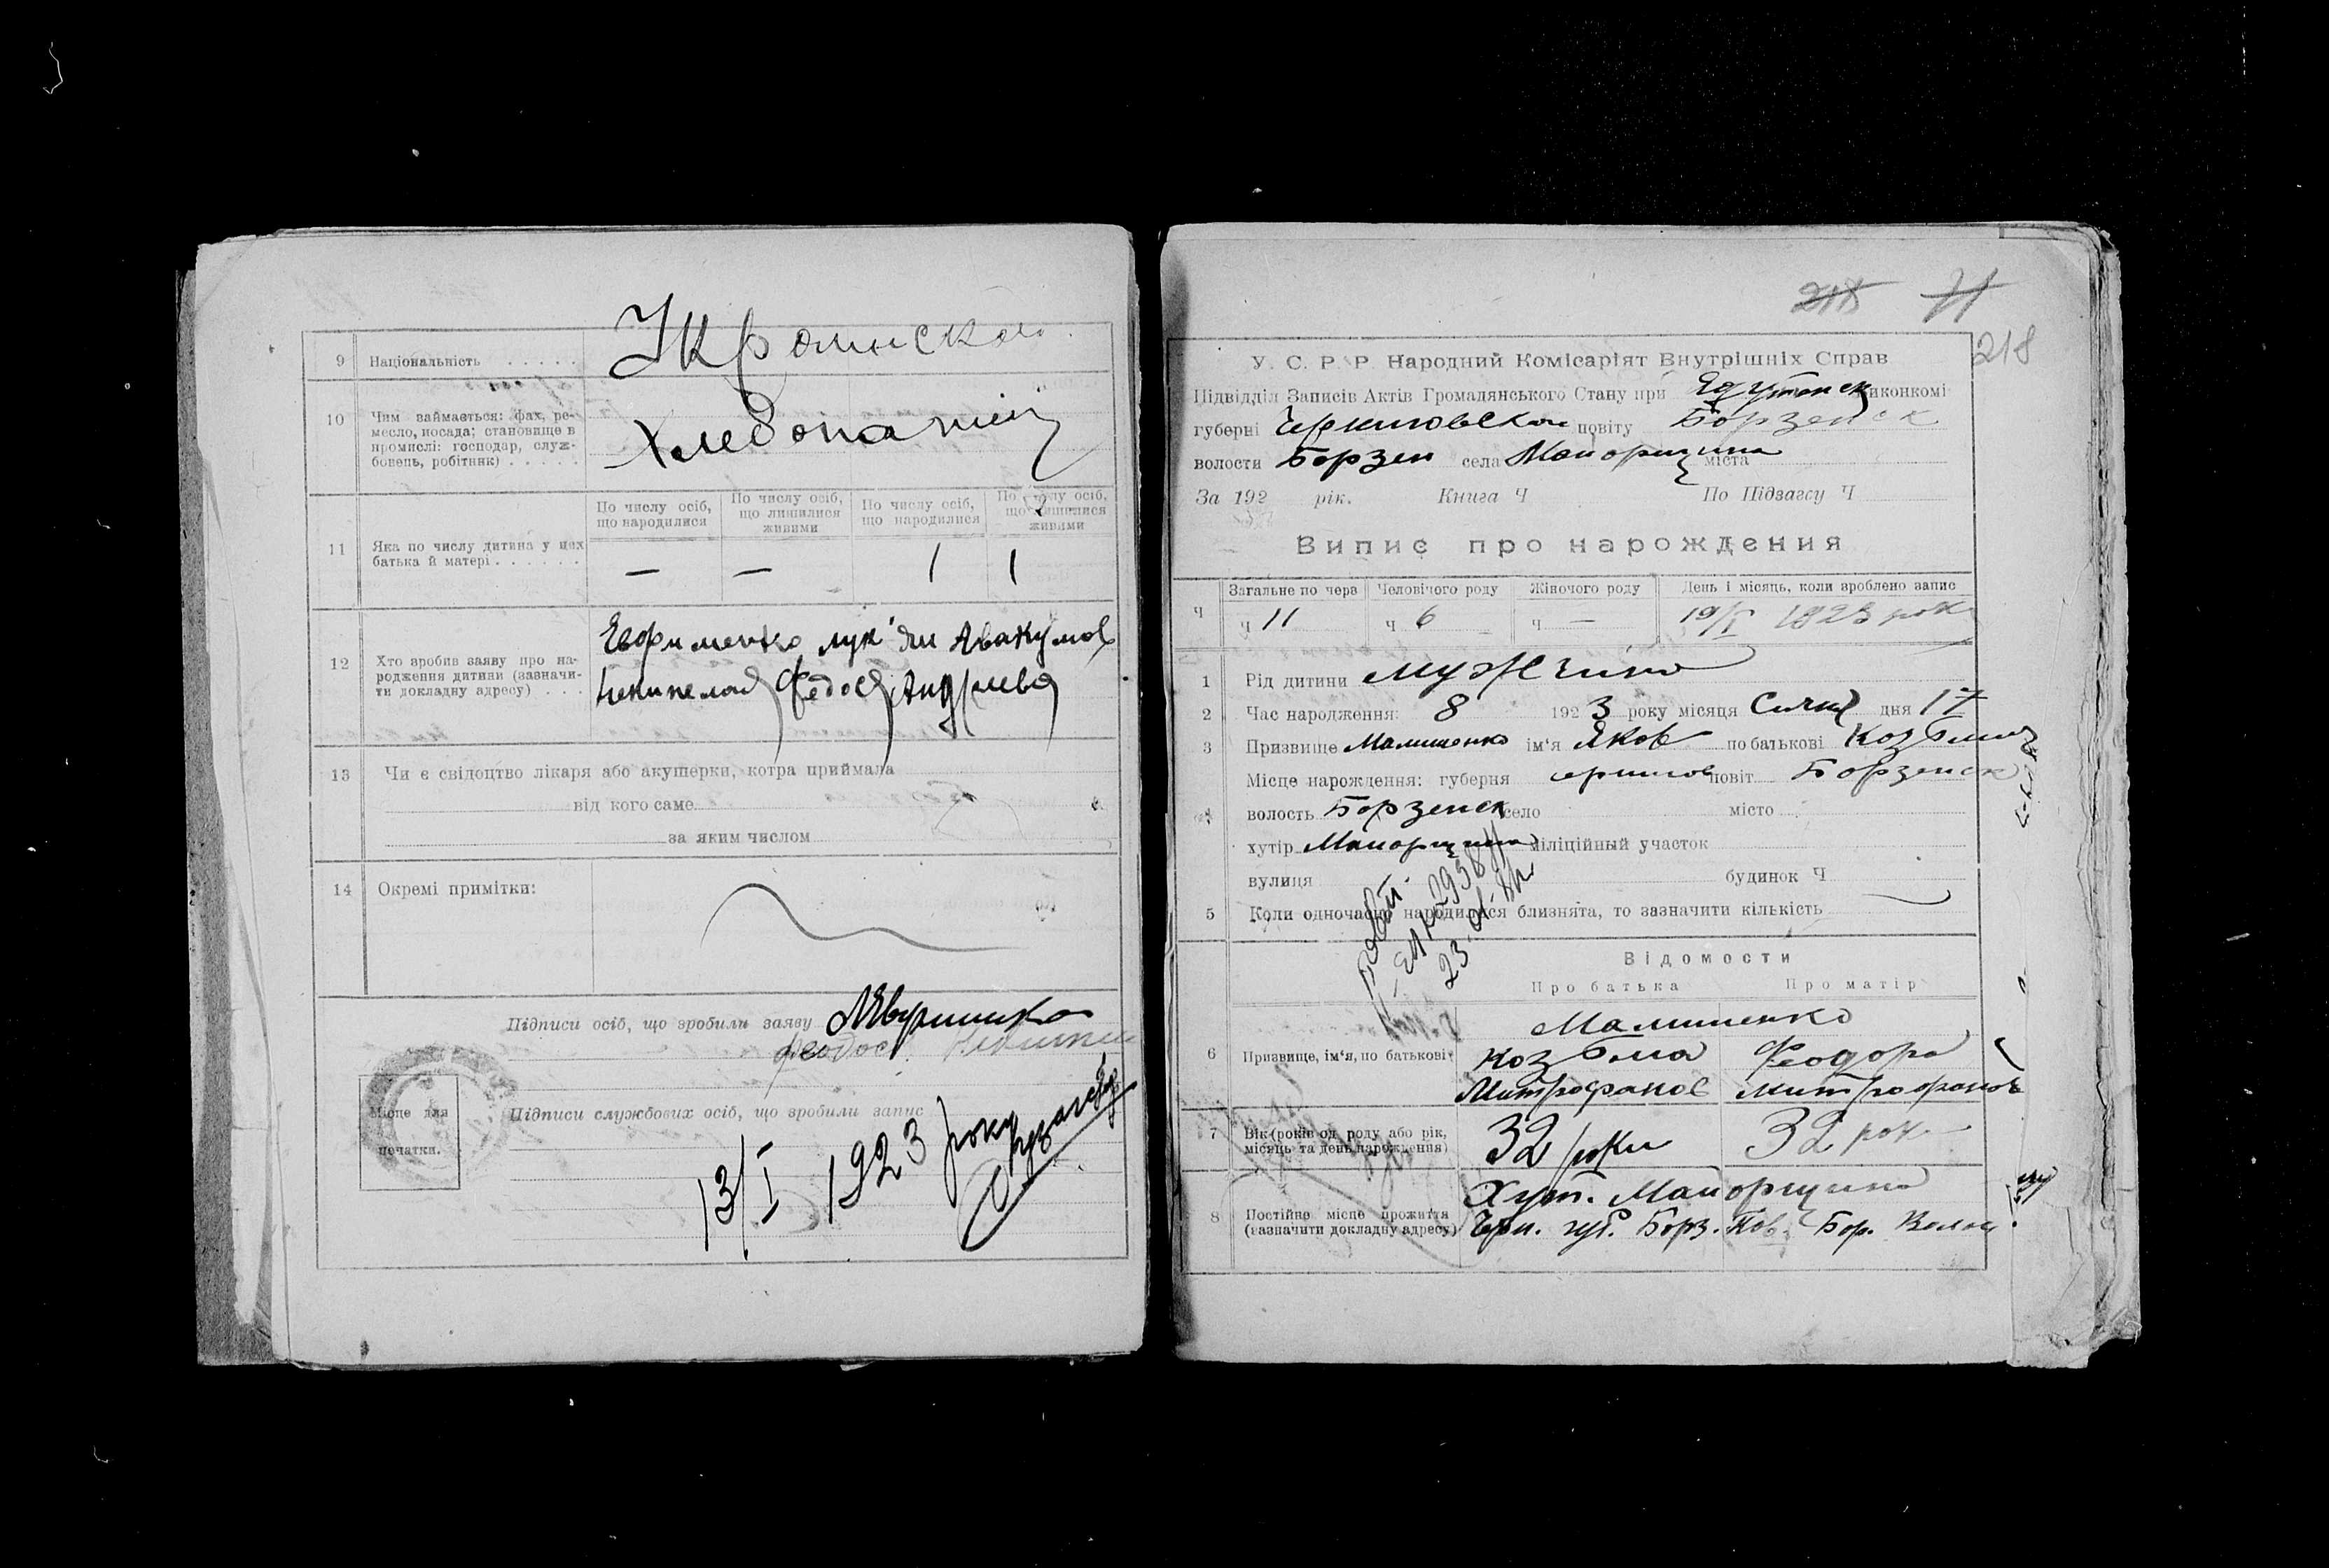 9 Національність . . . . .
Украинской
10 Чим займається: фах, ре-
месло, посада; становище в
промислі: господар, служ-
бовець, робітник) . . . . .
Хлебопашец
По числу осіб, що народилися
По числу осіб, що лишилися живими
По числу осіб, що народилися
По числу осіб, що лишилися живими
11 Яка по числу дитина у цих
батька й матері . . . . . .
— — 1 1
12 Хто зробив заяву про на-
родження дитини (зазначи-
ти докладну адресу) . . .
Евфименко Лук'ян Авакумов
Федос Андреев
13 Чи є свідоцтво лікаря або акушерки, котра приймала
від кого саме
за яким числом
14 Окремі примітки:
Підписи осіб, що зробили заяву
Феодос
Місце для
печатки.
Підписи службових осіб, що зробили запис
13/I 1923 року
218 71
218
У. С. Р. Р. Народний Комісаріят Внутрішніх Справ
Підвідділ Записів Актів Громадянського Стану при виконкомі
губерні Черниговской повіту Борзенск
волости Борзен села Маиорщина міста
За 192 рік. Книга Ч По Підзагсу Ч
Випис про народження
Ч Загальне по черв Человічого роду Жіночого роду День і місяць, коли зроблено запис
ч 11 ч 6 ч — 19/I 1923 рок
1 Рід дитини мужчина
2 Час народження: 8 1923 року місяця Сичня дня 17
3 Призвище Малишенко ім'я Яков по батькові Козьмич
4 Місце нарождення: губерня Чернигов повіт Борзенск
волость Борзенск село місто
хутір Маиорщина міліційный участок
вулиця будинок Ч
5 Коли одночасно народилися близнята, то зазначити кількість
Відомости
Про батька Про матір
Малишенко
6 Призвище, ім'я, по батькові
Козьма Феодора
Митрофанов Митрофанов
7 Вік (років од роду або рік,
місяць та день народження)
32 роки 32 рок
8 Постійне місце прожиття
(зазначити докладну адресу)
Хут. Маиорщина
Черн. губ. Борз. Пов. Бор. Волос